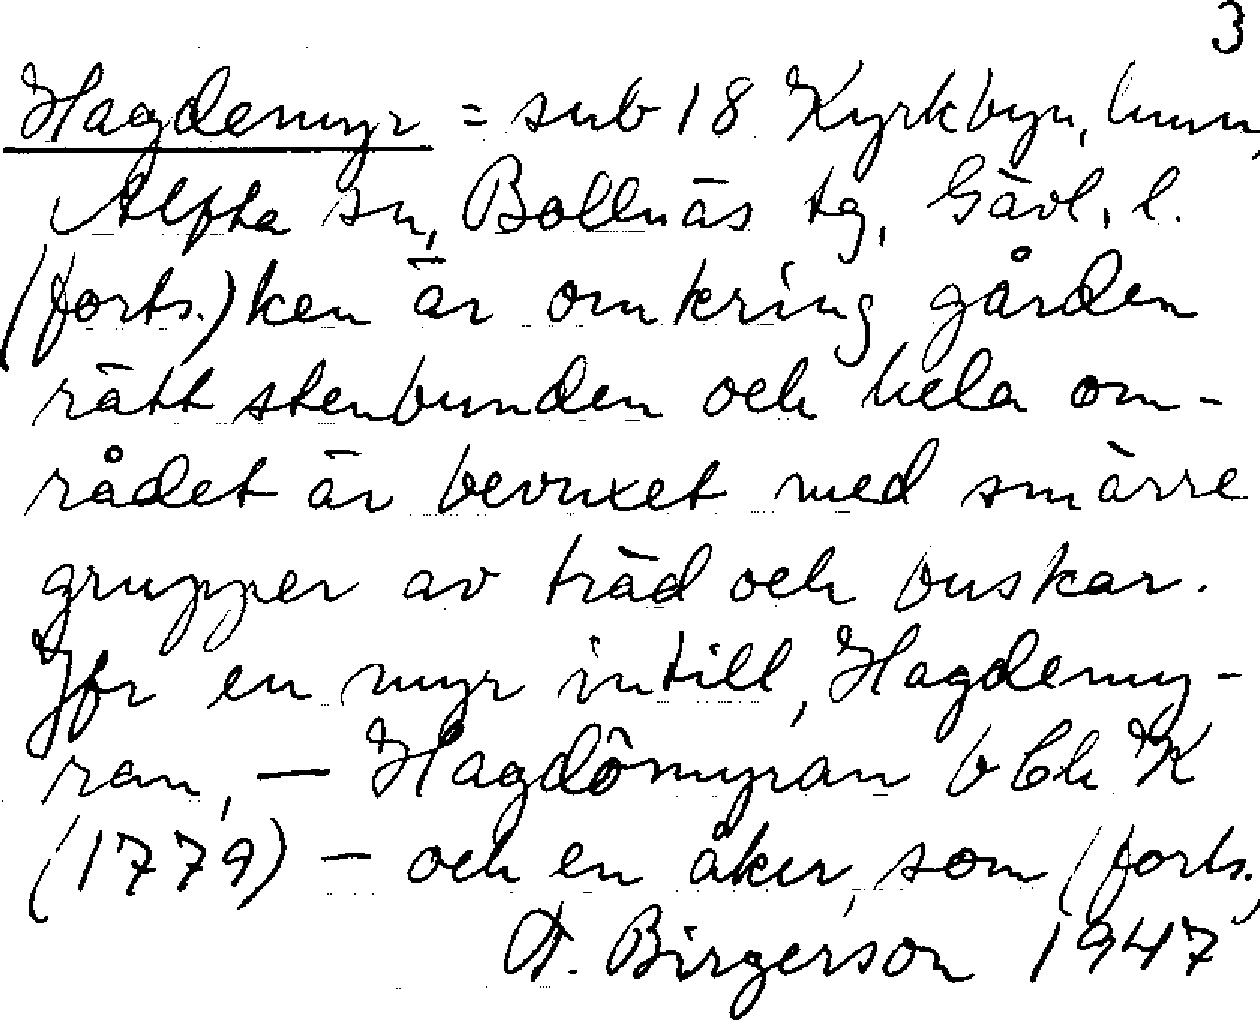 3
Hagdemyr = sub 18 Kyrkbyn, hmn,
Alfta sn, Bollnäs tg, Gävl. l.
(forts.) ken är omkring gården
rätt stenbunden och hela om-
rådet är bevuxet med smärre
grupper av träd och buskar.
Jfr en myr intill, Hagdemy-
ran, — Hagdömyran b Ch K
(1779) — och en åker, som (forts.)
A. Birgerson 1947